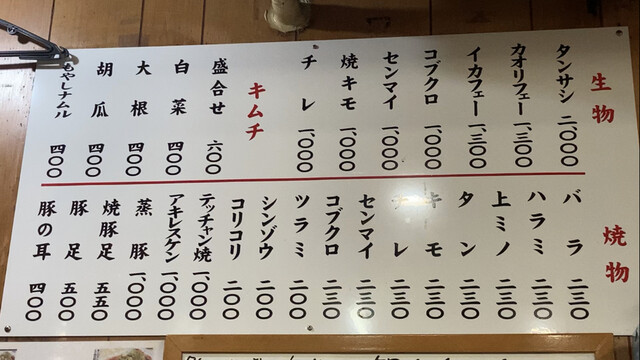 生物
タンサシ 二、〇〇〇
カオリフェー 一、三〇〇
イカフェー 一、三〇〇
コブクロ 一、〇〇〇
センマイ 一、〇〇〇
焼キモ 一、〇〇〇
チレ 一、〇〇〇
キムチ
盛合せ 六〇〇
白菜 四〇〇
大根 四〇〇
胡瓜 四〇〇
もやしナムル 四〇〇
焼物
バラ 二三〇
ハラミ 二三〇
上ミノ 二三〇
タン 二三〇
キモ 二三〇
チレ 二三〇
センマイ 二三〇
コブクロ 二三〇
ツラミ 二〇〇
シンゾウ 二〇〇
コリコリ 二〇〇
テッチャン焼 一、〇〇〇
アキレスケン 一、〇〇〇
蒸豚 一、〇〇〇
焼豚足 五五〇
豚足 五〇〇
豚の耳 四〇〇